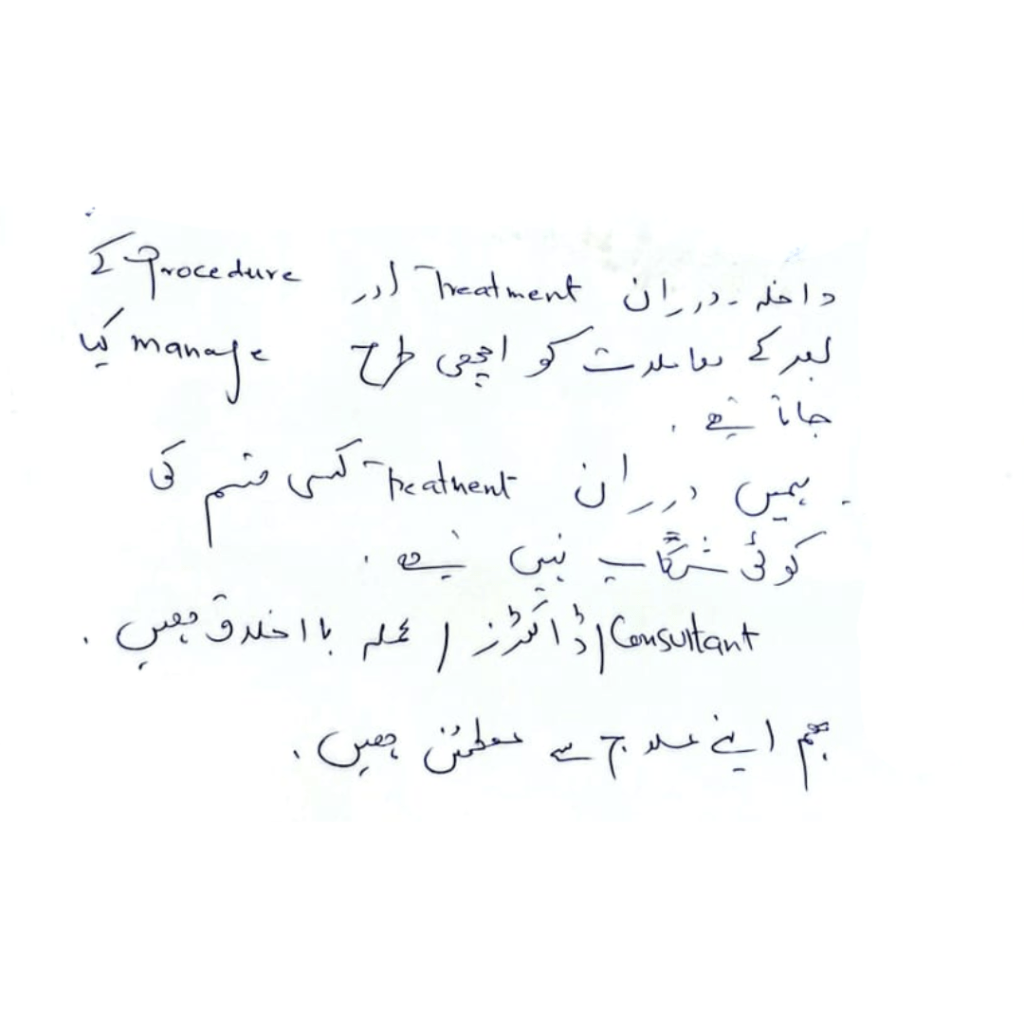 داخلہ - دوران Treatment اور Procedure کے
بعد کے معاملات کو اچھی طرح manage کیا
جاتا ہے ۔
۔ ہمیں دوران Treatment کسی قسم کی
کوئی شکایت نہیں ہے ۔
Consultant / ڈاکٹرز / عملہ بااخلاق ہیں ۔
ہم اپنے علاج سے مطمئن ہیں ۔